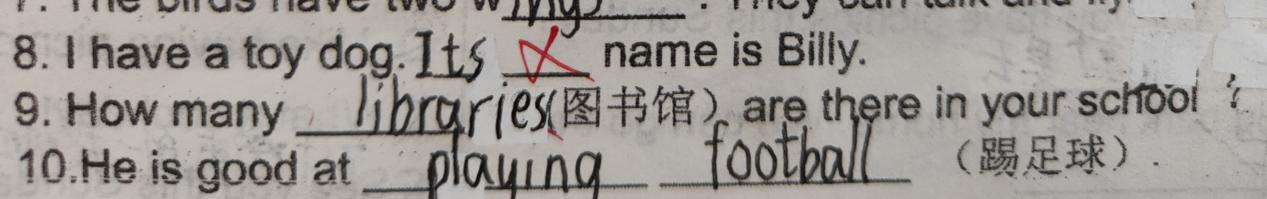 7. The birds have two wings. They can talk and fly.
8. I have a toy dog. Its name is Billy.
9. How many libraries(图书馆) are there in your school ?
10.He is good at playing football (踢足球).